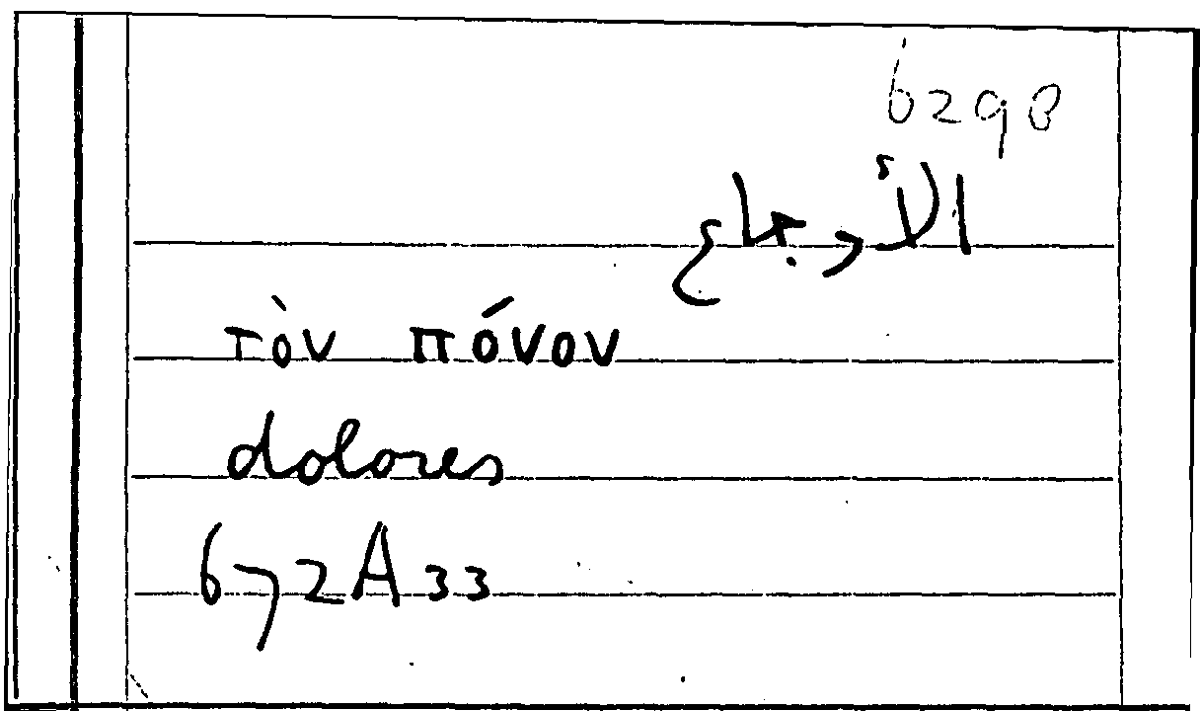 6290
الأوجاع
τὸν πόνον
dolores
672A33